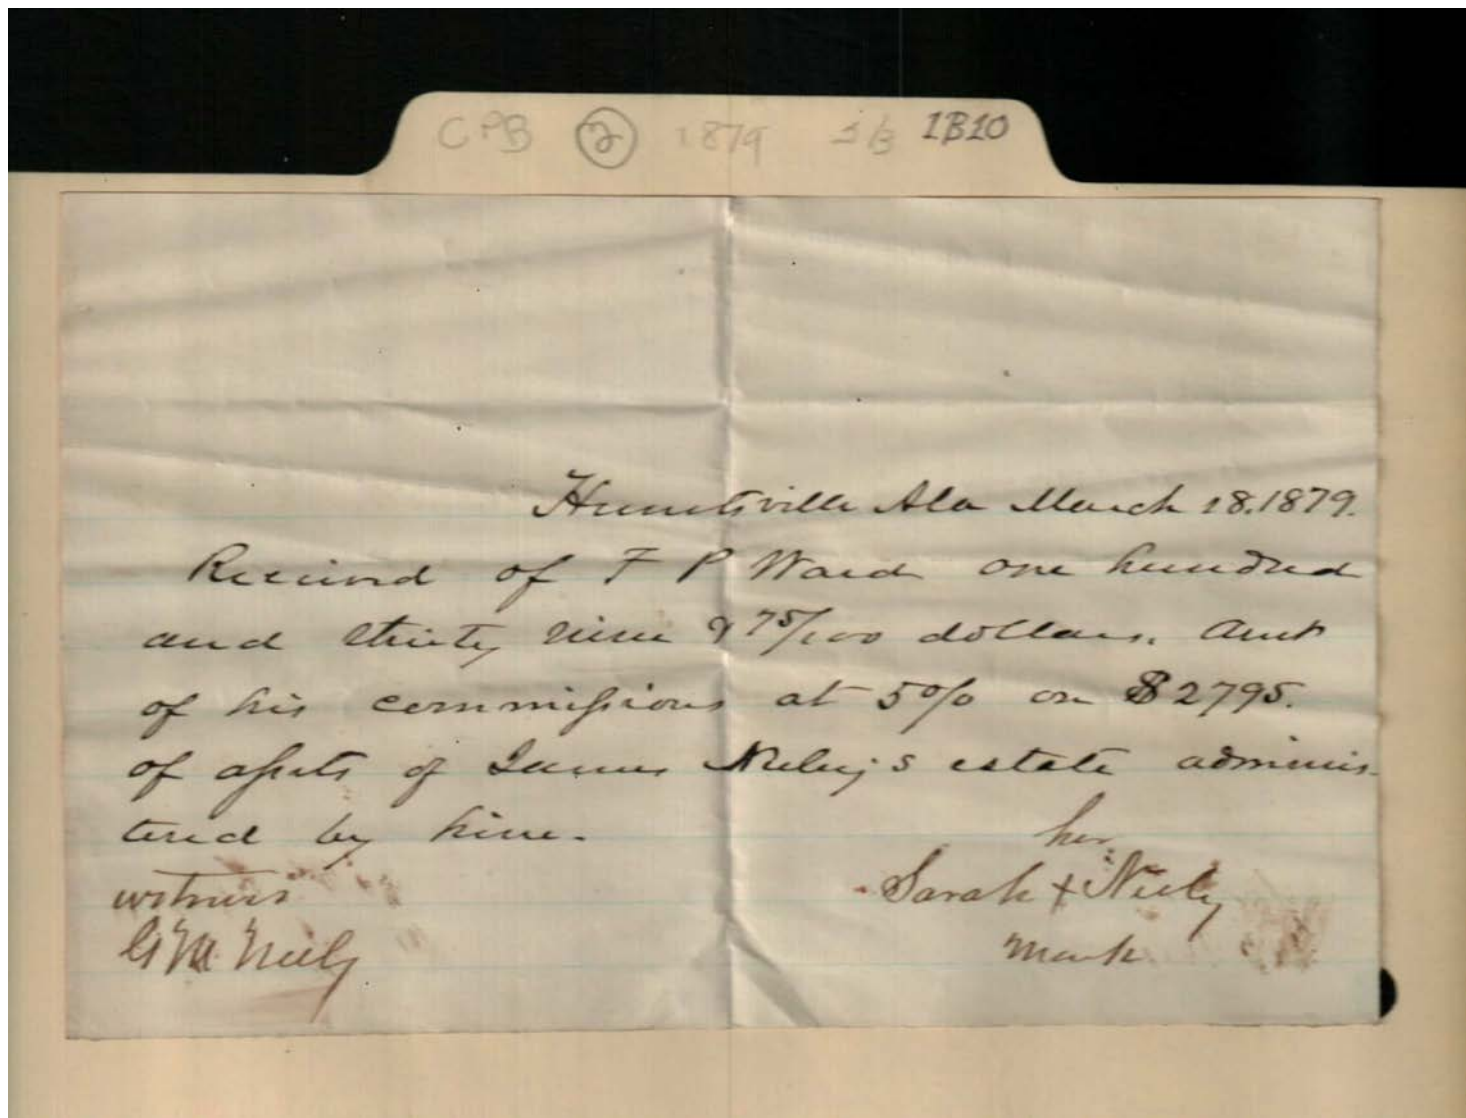 CPB 2 1879 1B10
Huntsville Ala March 18. 1879.
Received of F P Ward one hundred
and thirty nine & 75/100 dollars. Amt
of his commissions at 5% on $2795.
of assets of James Neely's estate adminis-
tered by him.
her
Sarah + Neely
mark
witness
G M Neely